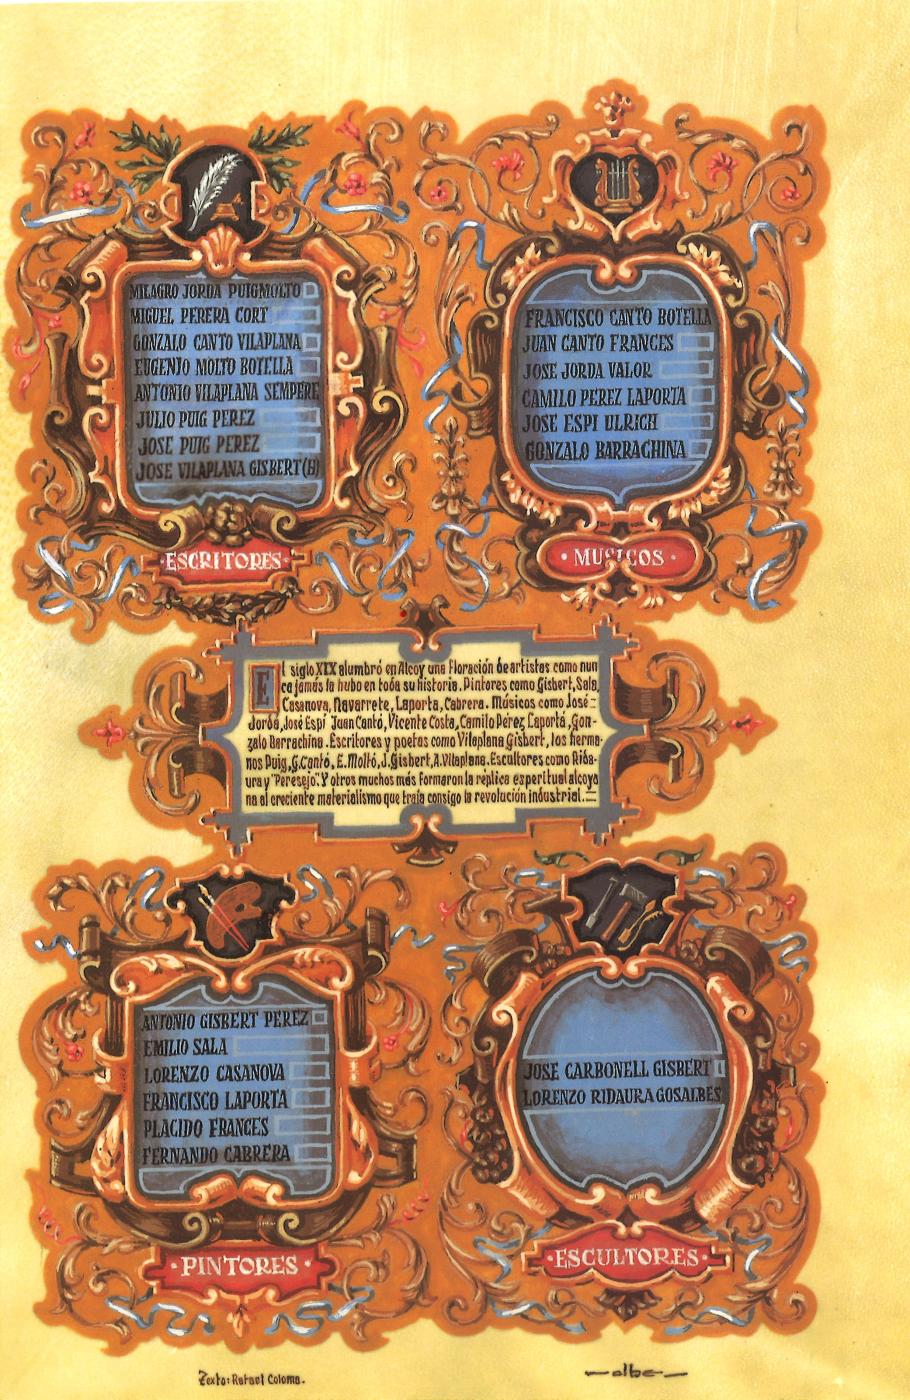 MILAGRO JORDA PUIGMOLTO
MIGUEL PERERA CORT
GONZALO CANTO VILAPLANA
EUGENIO MOLTO BOTELLA
ANTONIO VILAPLANA SEMPERE
JULIO PUIG PEREZ
JOSE PUIG PEREZ
JOSE VILAPLANA GISBERT(B)
ESCRITORES
FRANCISCO CANTO BOTELLA
JUAN CANTO FRANCES
JOSE JORDA VALOR
CAMILO PEREZ LAPORTA
JOSE ESPI ULRICH
GONZALO BARRACHINA
MUSICOS
El siglo XIX alumbró en Alcoy una floración de artistas como nun
ca jamás la hubo en toda su historia. Pintores como Gisbert, Sala,
Casanova, Navarrete, Laporta, Cabrera. Músicos como José-
Jordá, José Espí Juan Cantó, Vicente Costa, Camilo Pérez Laporta, Gon-
zalo Barrachina. Escritores y poetas como Vilaplana Gisbert, los herma-
nos Puig, G. Cantó, E. Moltó, J. Gisbert, A. Vilaplana. Escultores como Rida-
ura y "Peresejo". Y otros muchos más formaron la réplica espiritual alcoya
na al creciente materialismo que traía consigo la revolución industrial.
ANTONIO GISBERT PEREZ
EMILIO SALA
LORENZO CASANOVA
FRANCISCO LAPORTA
PLACIDO FRANCES
FERNANDO CABRERA
PINTORES
JOSÉ CARBONELL GISBERT
LORENZO RIDAURA GOSALBES
ESCULTORES
Texto: Rafael Coloma.
albe